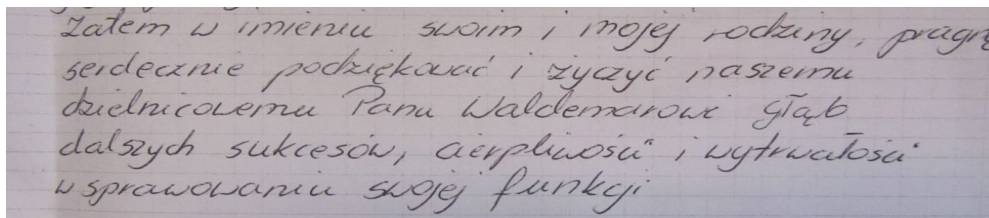 Zatem w imieniu swoim i mojej rodziny, pragnę
serdecznie podziękować i życzyć naszemu
dzielnicowemu Panu Waldemarowi Głąb
dalszych sukcesów, cierpliwości i wytrwałości
w sprawowaniu swojej funkcji